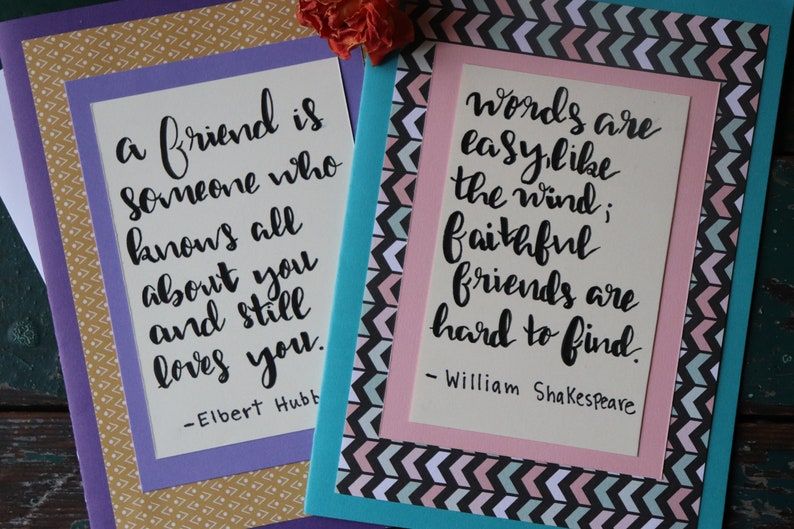 a friend is
someone who
knows all
about you
and still
loves you.
-Elbert Hubb
words are
easy, like
the wind;
faithful
friends are
hard to find.
- William Shakespeare